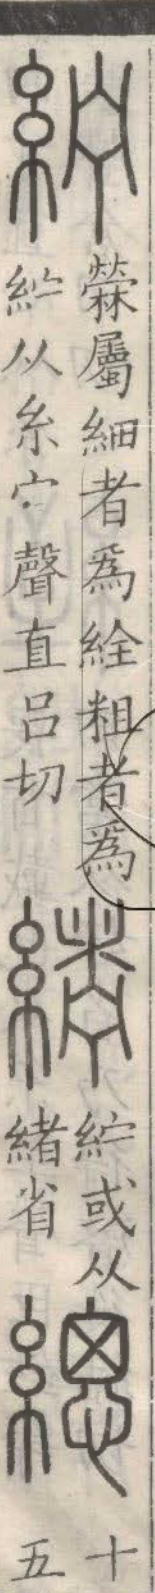 紵
檾屬細者爲絟粗者爲
紵从糸宁聲直吕切
𦂂
紵或从
緒省
緦
十
五